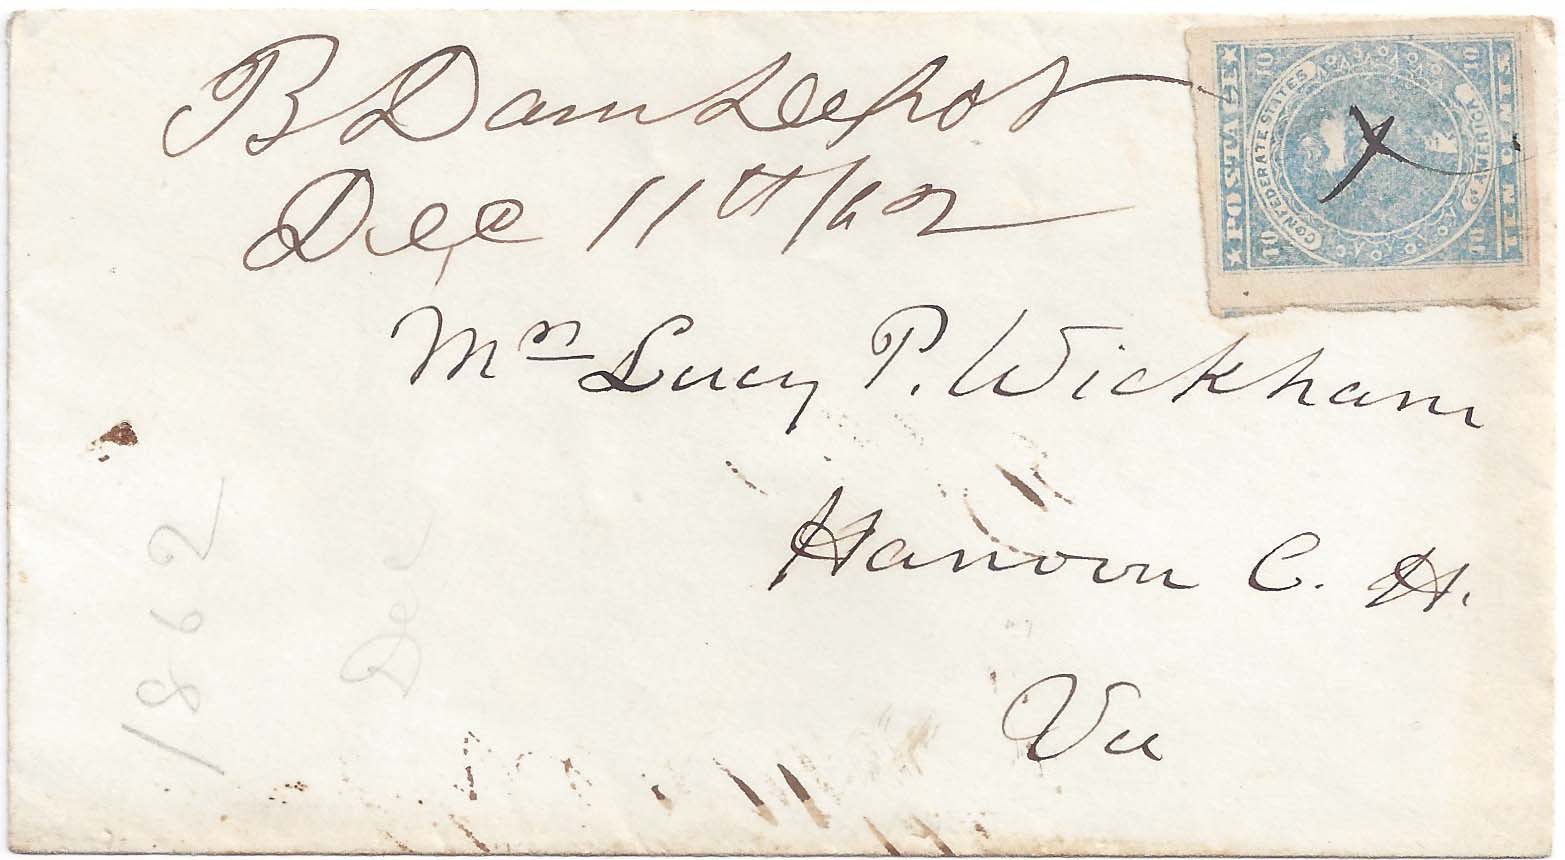 B Dam Depot
Dec 11th/62
Mrs Lucy P. Wickham
Hanover C. H.
Va
1862
Dec
POSTAGE
CONFEDERATE STATES
OF AMERICA
TEN CENTS
10 10
10 10